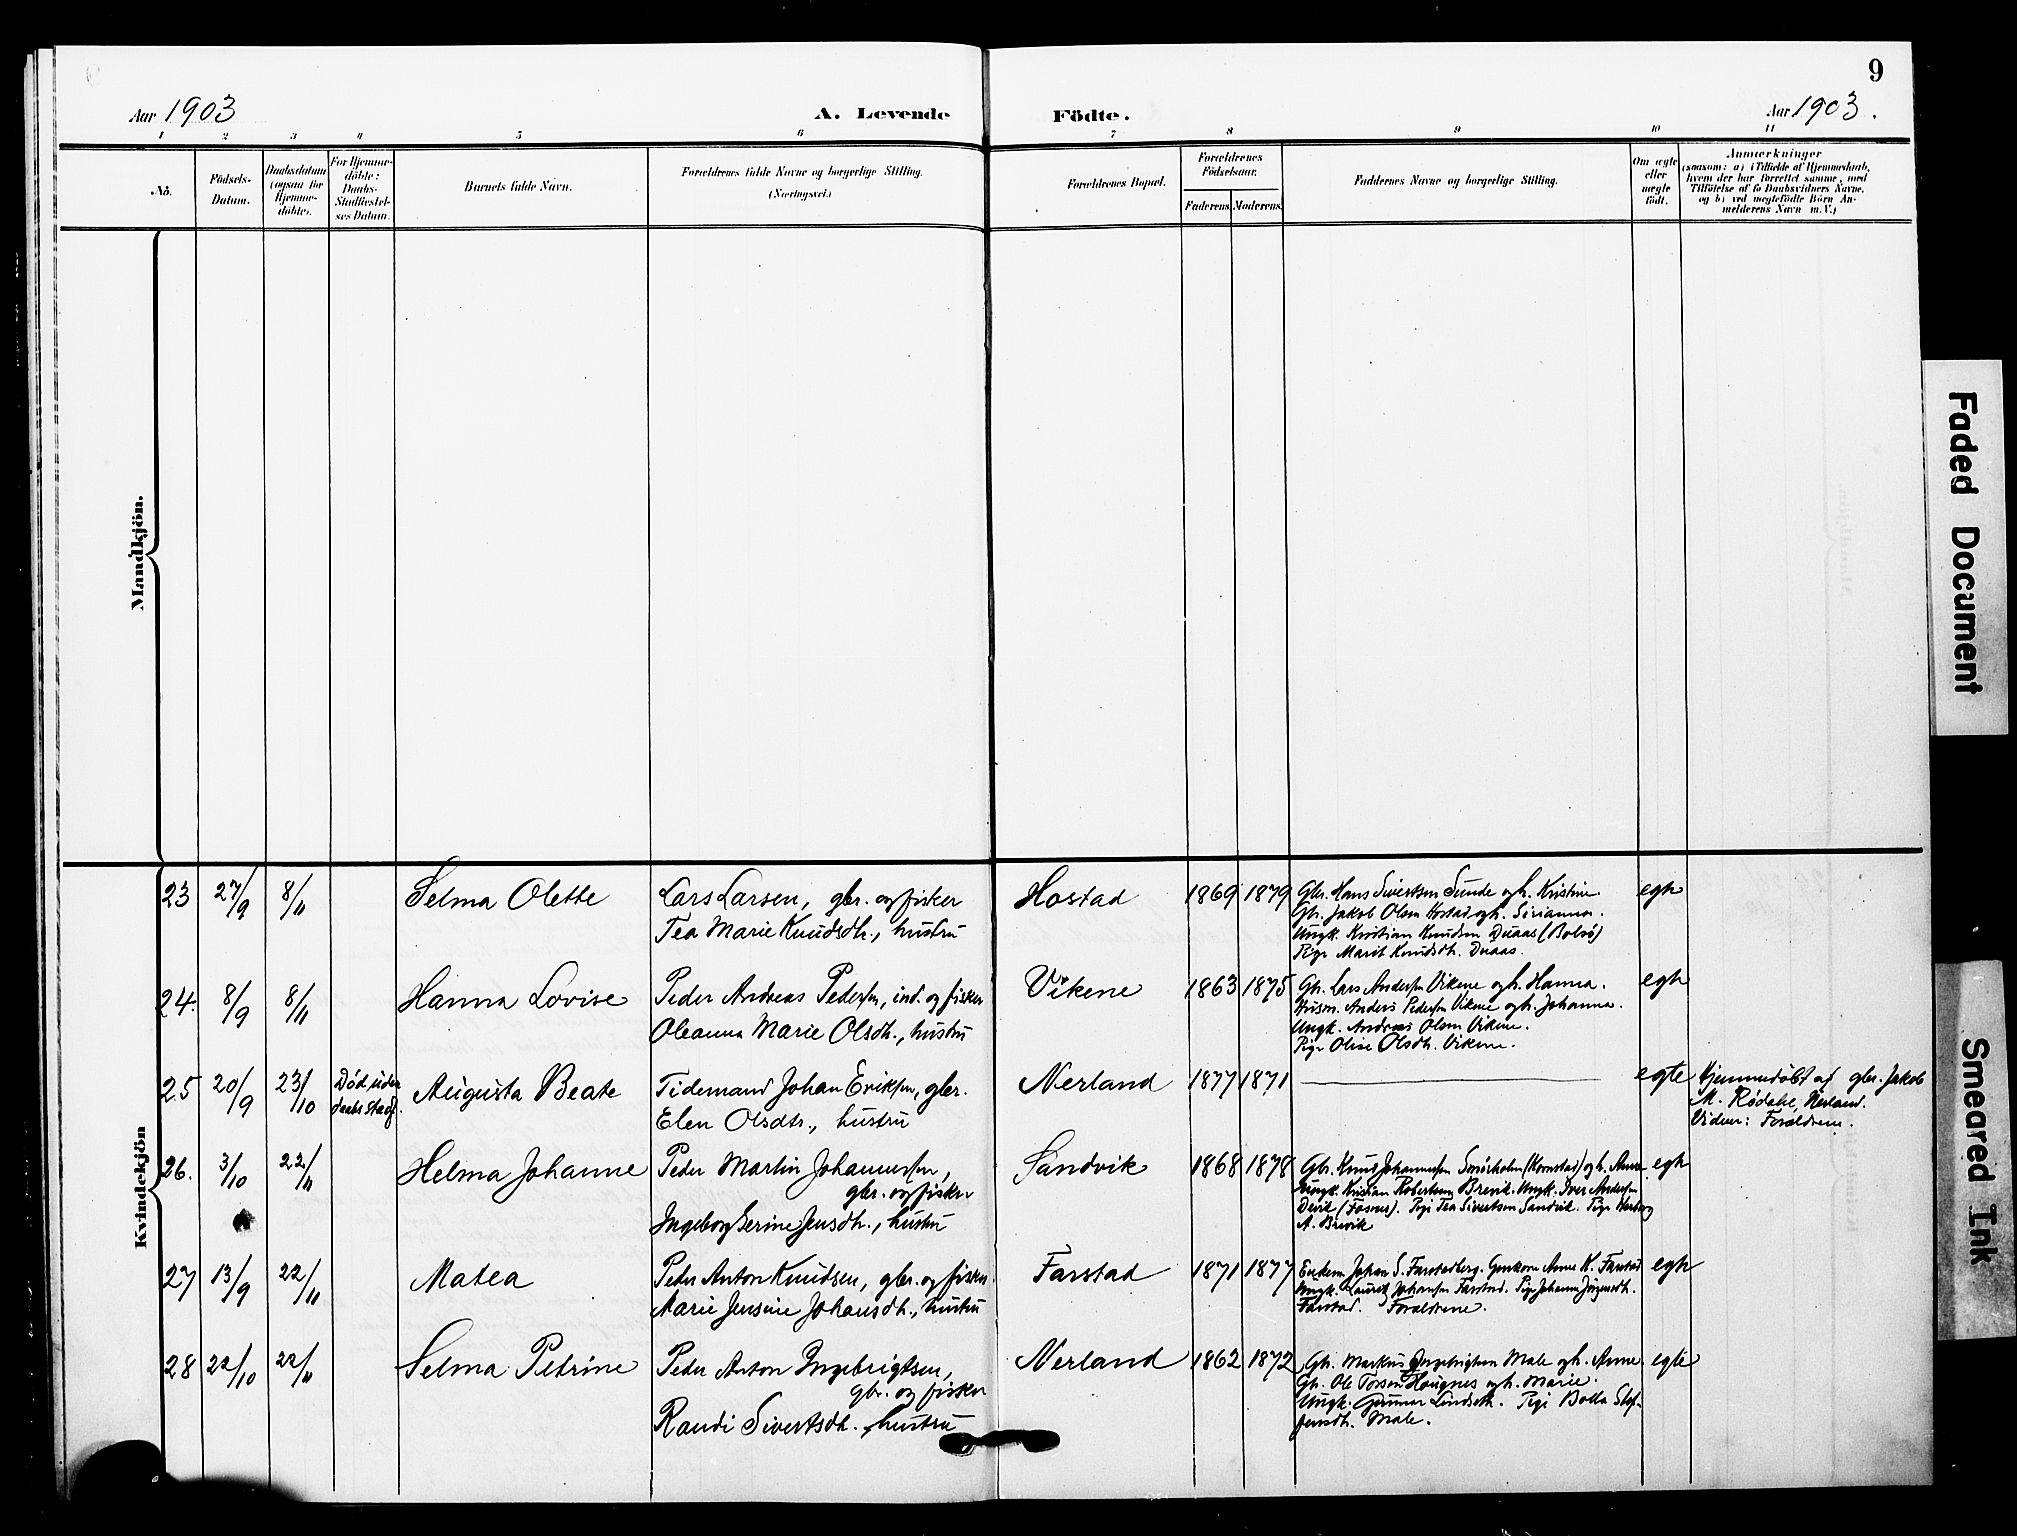 9
Aar 1903
A. Levende Födte.
Aar 1903.
1 2 3 4 5 6 7 8 9 10 11
No.
Födsels-
Datum.
Daabsdatum
(ogsaa for
Hjemme-
döbte).
For Hjemme-
döbte:
Daabs-
Stadfæstel-
ses Datum.
Barnets fulde Navn.
Forældrenes fulde Navne og borgerlige Stilling.
(Næringsvei.)
Forældrenes Bopæl.
Forældrenes
Födselsaar.
Faderens
Moderens.
Faddernes Navne og borgerlige Stilling.
Om ægte
eller
uægte
födt.
Anmærkninger
(saasom: a) i Tilfælde af Hjemmedaab,
hvem der har forrettet samme, med
Tilföielse af to Daabsvidners Navne.
og b) ved uægtefödte Börn An-
melderens Navn m. V.)
Mandkjön.
Kvindekjön
23 27/9 8/11 Selma Olette
Lars Larsen, gbr. og fisker
Tea Marie Knudsdtr., hustru
Hostad 1869 1879
Gbr. Hans Sivertsen Sunde og h. Kristine.
Gbr. Jakob Olsen Hostad og h. Sirianna.
Ungk. Kristian Knudsen Duaas (Bolsø)
Pige Marit Knudsdtr. Duaas.
egte
24. 8/9 8/11 Hanna Lovise
Peder Andreas Pedersen, ind. og fisker
Oleanna Marie Olsdtr., hustru
Vikene 1863 1875
Gbr. Lars Andersen Vikene og h. Hanna.
Husm. Anders Pedersen Vikene og h. Johanna.
Ungk. Andreas Olsen Vikene.
Pige Olise Olsdtr. Vikene.
egte
25 20/9 23/10 Død uden
daabs stadf.
Augusta Beate
Tidemand Johan Eriksen, gbr.
Elen Olsdtr., hustru
Nerland 1877 1871
egte
Hjemmedøbt af gbr. Jakob
M. Rødahl, Nerland.
Vidner: Forældrene.
26. 3/10 22/11 Helma Johanne
Peder Martin Johannessen,
gbr. og fisker
Ingeborg Serine Jensdtr., hustru
Sandvik 1868 1878
Gbr. Knud Johannessen Smørholm (Kornstad) og h. Anne
Ungk. Kristian Robertsen Brevik. Ungk. Iver Andersen
Pige Tea Sivertsen Sandvik. Pige
A. Brevik
egte
27 13/9 22/11 Matea
Peder Anton Knudsen, gbr. og fisker
Marie Jensine Johansdtr., hustru
Farstad 1871 1877
Enkem. Johan S. Farstadberg. Anne K. Farstad
Ungk. Laurits Johansen Farstad. Pige Johanna Jörgensdtr.
Farstad. Forældrene.
egte
28 22/10 22/11 Selma Petrine
Peder Anton Ingebrigtsen,
gbr. og fisker
Randi Sivertsdtr., hustru
Nerland 1862 1872
Gbr. Markus Ingebrigtsen Male og h. Anne.
Gbr. Ole Torsen Hougnes og h. Marie.
Ungk. Gunnar Lindseth. Pige Bolla Stef-
fensdtr. Male.
egte
Faded Document
Smeared Ink